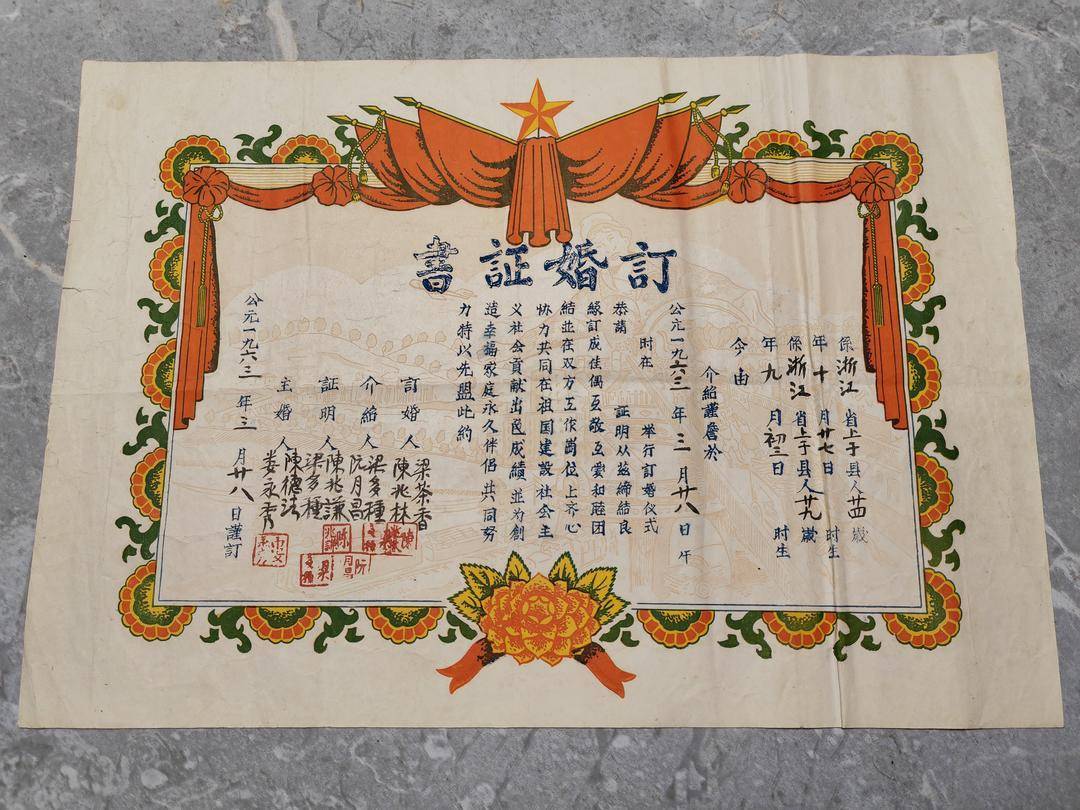 訂婚証書
係浙江省上于县人廿四歲
年十月廿七日时生
係浙江省上于县人廿九歲
年九月初三日时生
今由
介紹謹詹於
公元一九六三年三月廿八日午
时在举行訂婚仪式
恭請証明从兹締結良
緣訂成佳偶互敬互爱和睦团
結並在双方工作崗位上齐心
协力共同在祖国建設社会主
义社会貢献出色成績並为创
造幸福家庭永久伴侣共同努
力特以先盟此約
訂婚人梁茶香
陳兆林
介紹人梁多種
阮月昌
証明人陳兆謙
梁多種
主婚人陳德法
娄永秀
公元一九六三年三月廿八日謹訂